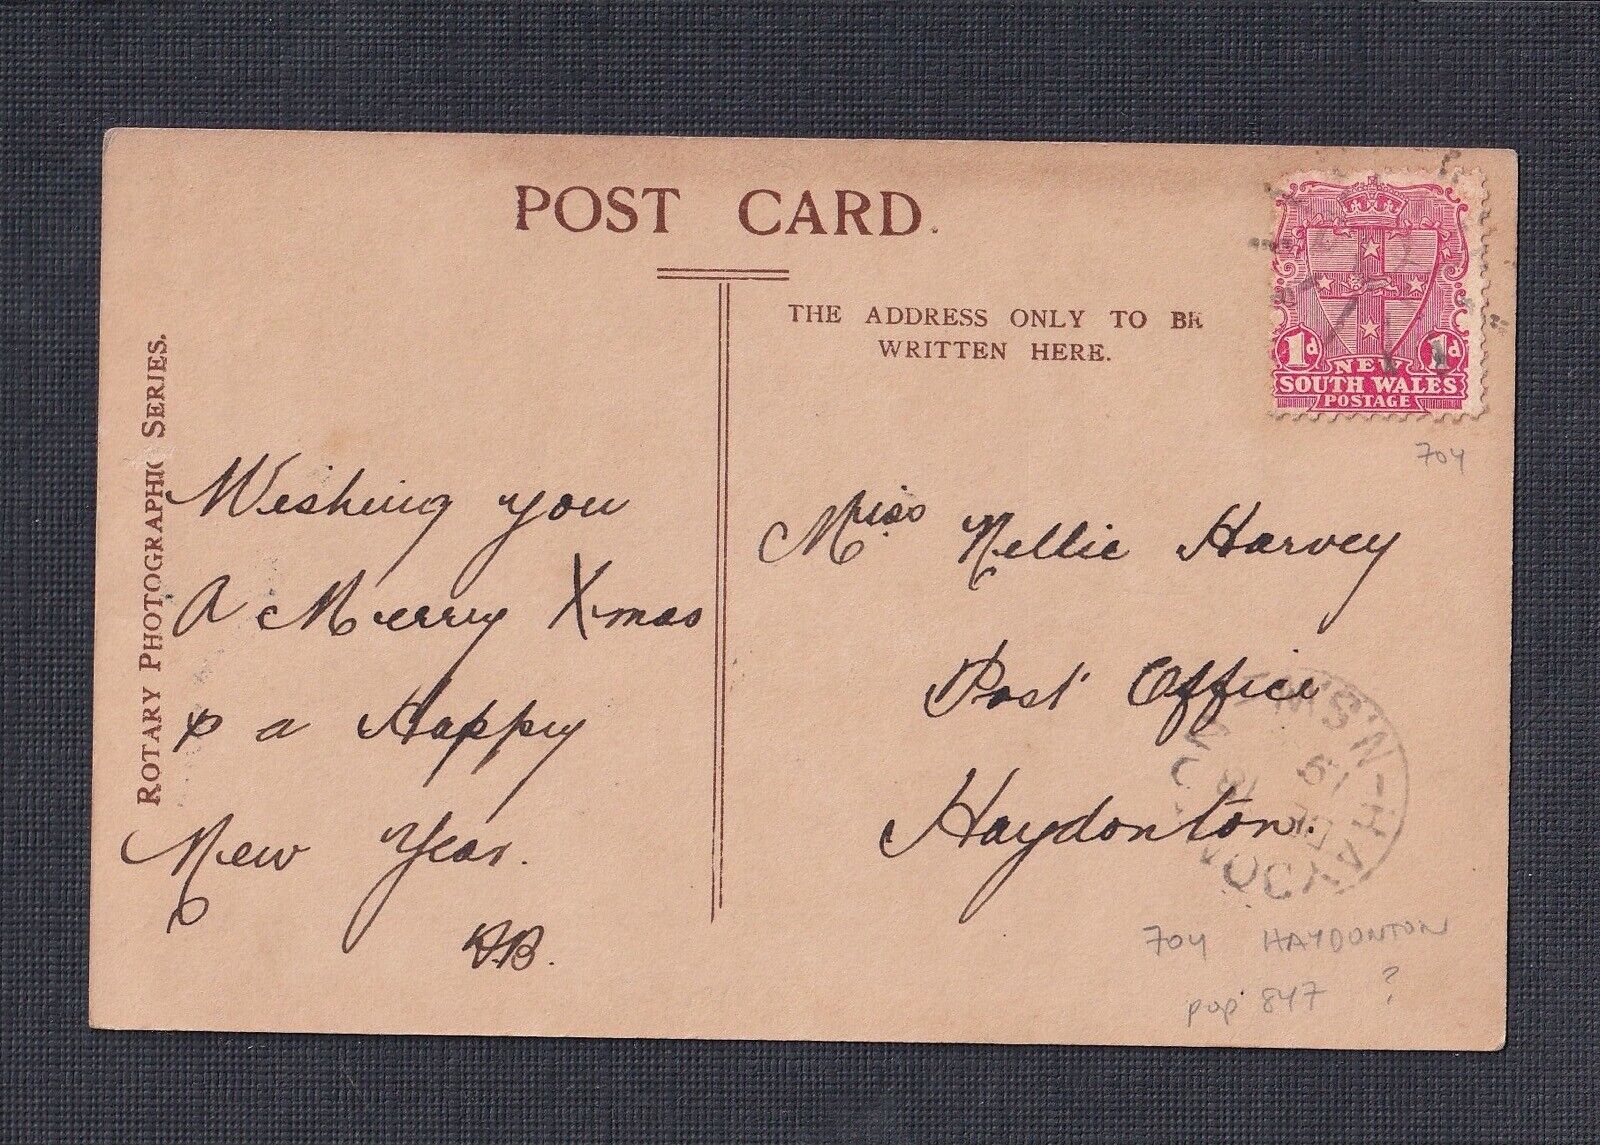 POST CARD.
THE ADDRESS ONLY TO BE
WRITTEN HERE.
ROTARY PHOTOGRAPHIC SERIES.
1d 1d
NEW
SOUTH WALES
POSTAGE
704
Wishing you
A Merry Xmas
& a Happy
New Year.
Miss Nellie Harvey
Post Office
Haydonton.
HAYDON N.S.W
704 HAYDONTON
pop 847 ?